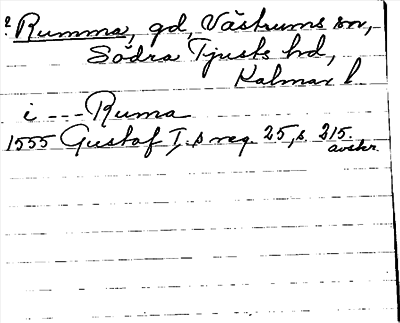 ? Rumma, gd, Västrums sn,
Södra Tjusts hd,
Kalmar l.
i --- Ruma
1555 Gustaf I,s reg. 25, s. 215.
avskr.